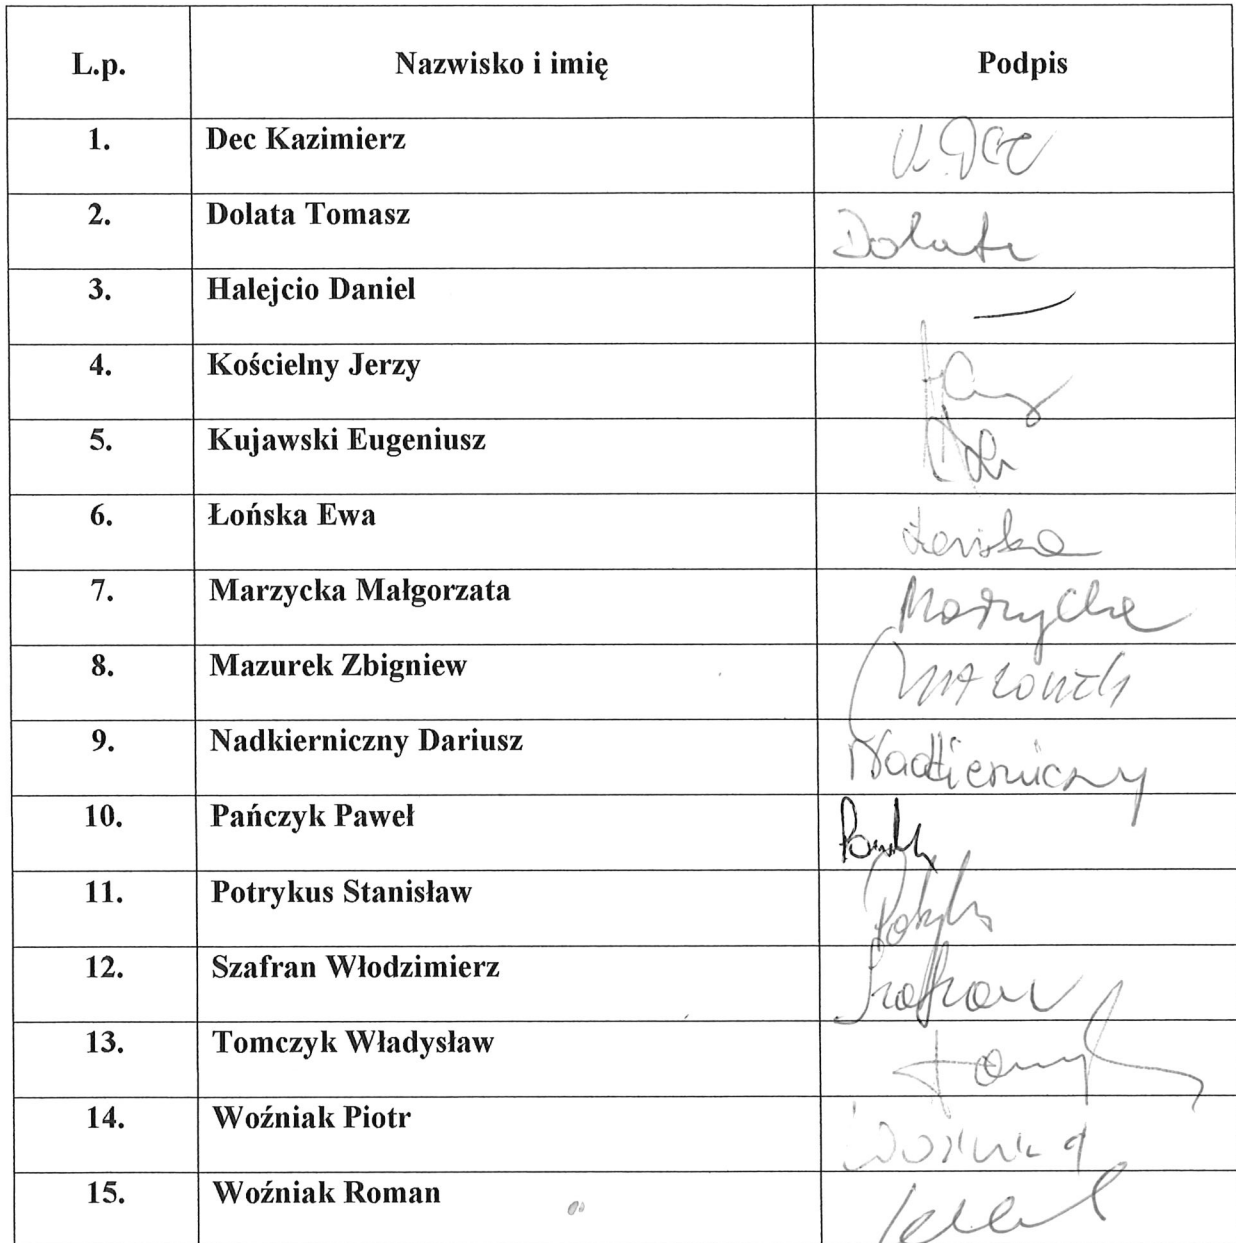 L.p. Nazwisko i imię Podpis
1. Dec Kazimierz K. Dec
2. Dolata Tomasz Dolata
3. Halejcio Daniel —
4. Kościelny Jerzy
5. Kujawski Eugeniusz
6. Łońska Ewa Łońska
7. Marzycka Małgorzata Marzycka
8. Mazurek Zbigniew
9. Nadkierniczny Dariusz Nadkierniczny
10. Pańczyk Paweł
11. Potrykus Stanisław
12. Szafran Włodzimierz Szafran
13. Tomczyk Władysław
14. Woźniak Piotr Woźniak
15. Woźniak Roman